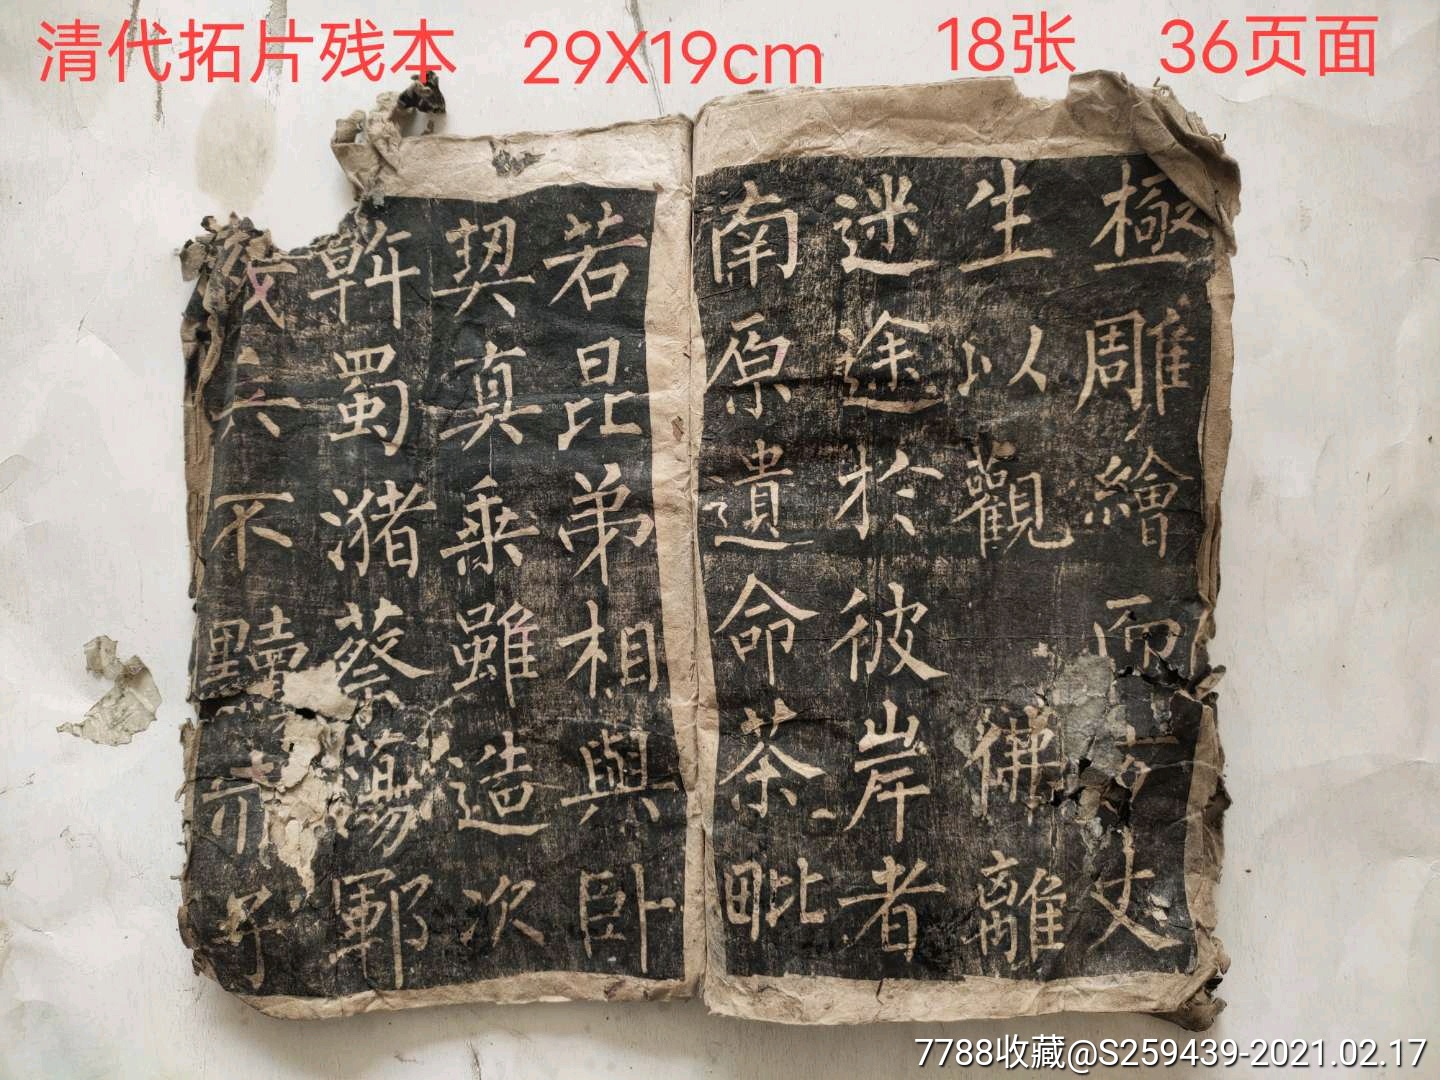 清代拓片残本 29X19cm 18张 36页面
極雕繪而丈
生以觀佛離
迷途於彼岸者
南原遺命荼毗
若昆弟相與臥
契真乘雖造次
斡蜀瀦蔡蕩鄆
不黷赤子
7788收藏@S259439-2021.02.17